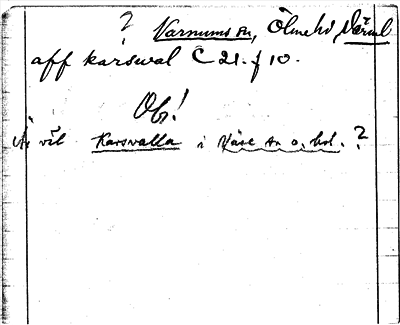 ? Varnums sn, Ölme hd, Värml
aff karswal C 21. f 10.
Obs!
Är väl Karsvalla i Väse sn o. hd. ?